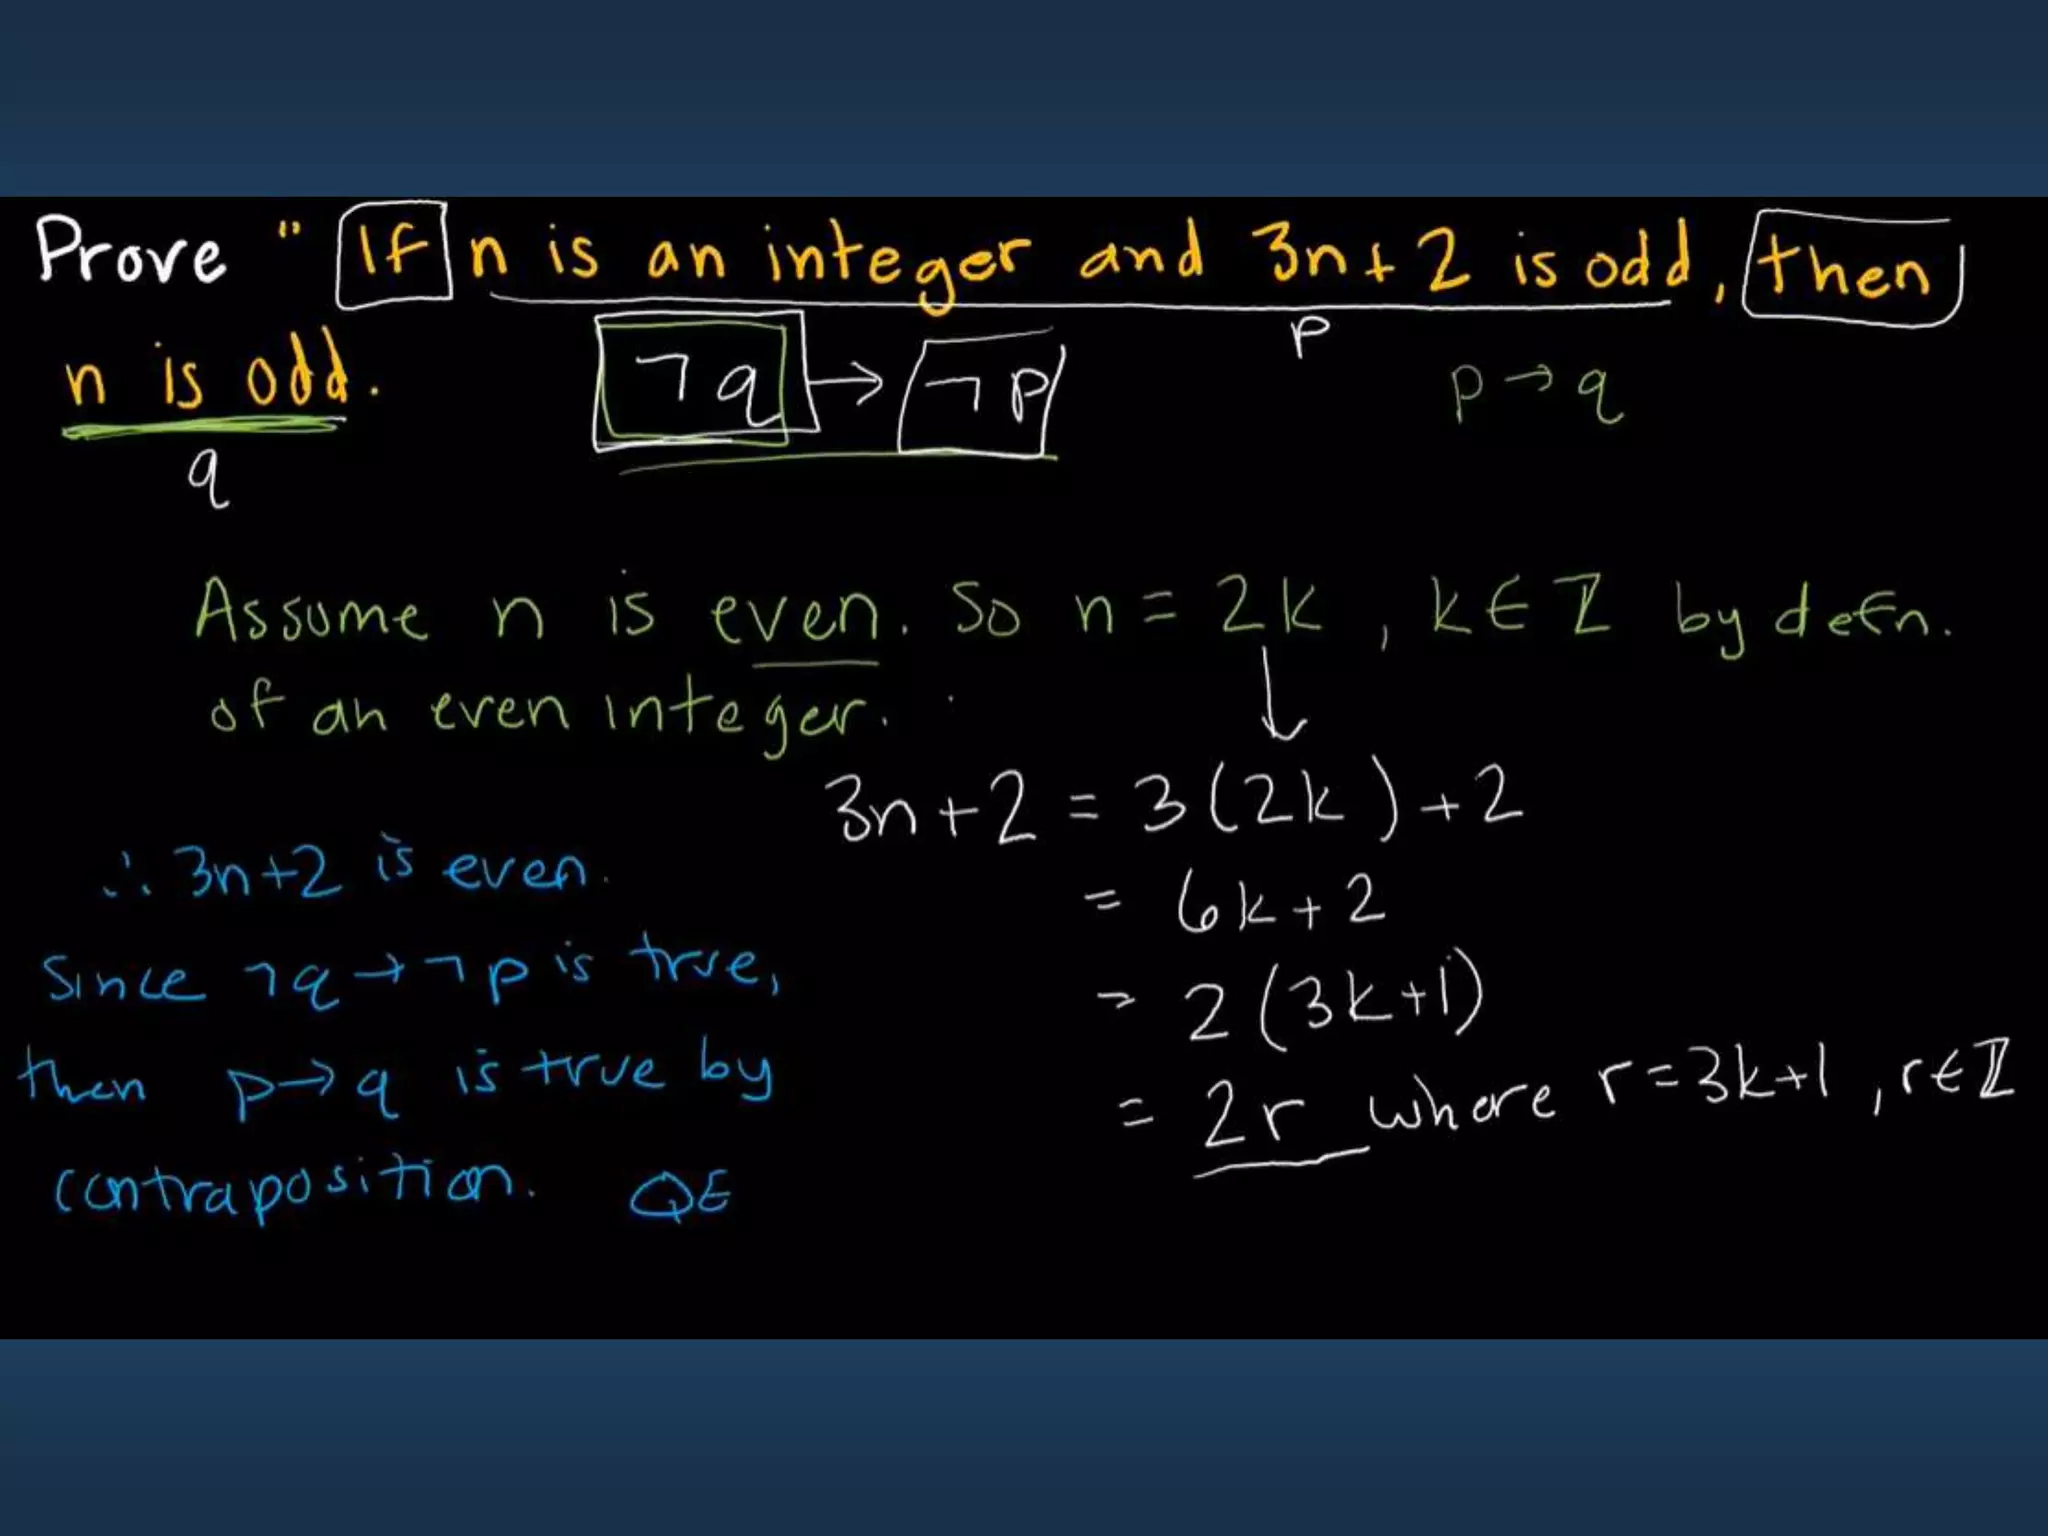 Prove "If n is an integer and 3n+2 is odd, then
p
n is odd.
q
¬q → ¬p
p → q
Assume n is even. So n = 2k, k ∈ ℤ by defn.
of an even integer.
3n+2 = 3(2k)+2
= 6k+2
= 2(3k+1)
= 2r where r=3k+1, r∈ℤ
∴ 3n+2 is even.
Since ¬q→¬p is true,
then p→q is true by
contraposition. QE